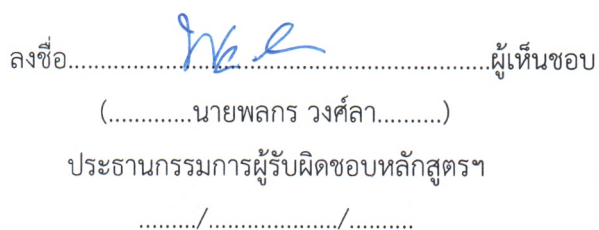 ลงชื่อ..............................................................ผู้เห็นชอบ
(.............นายพลกร วงศ์ลา..........)
ประธานกรรมการผู้รับผิดชอบหลักสูตรฯ
........./..................../..........